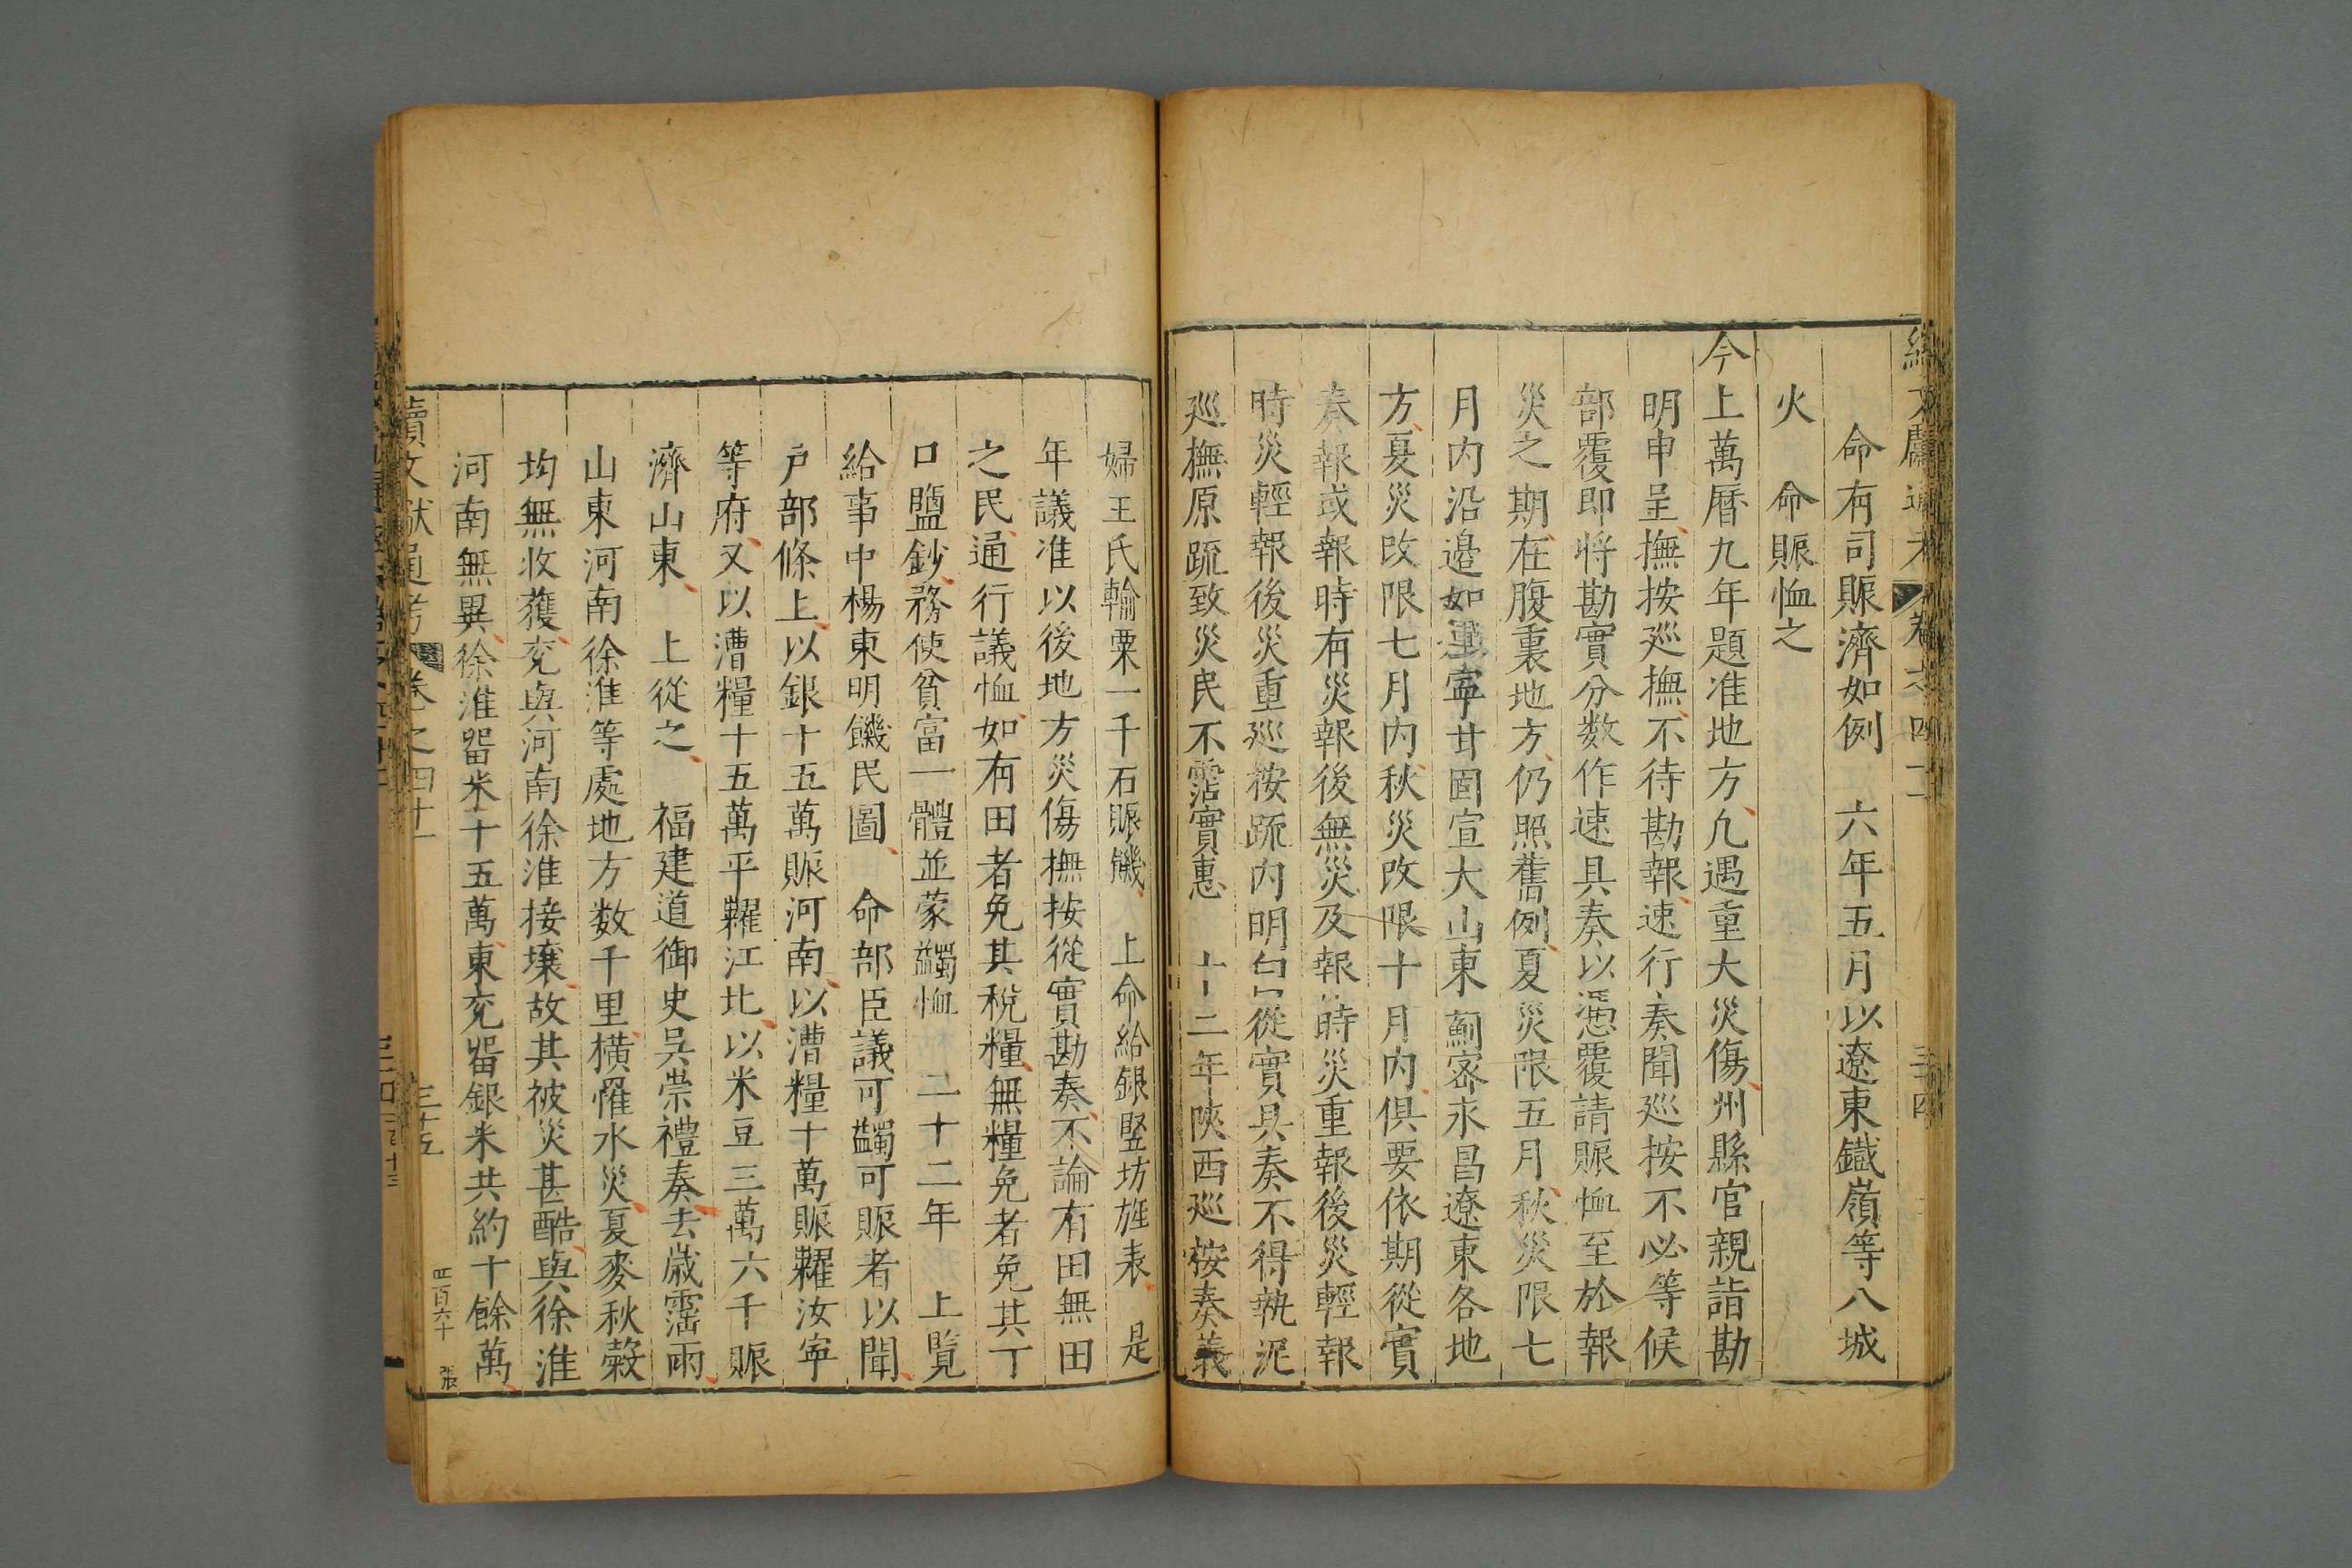 續文獻通考 卷之四十一 三十四
命有司賑濟如例 六年五月以遼東鐵嶺等八城
火 命賑恤之
今上萬曆九年題准地方凡遇重大災傷州縣官親詣勘
明申呈撫按巡撫不待勘報速行奏聞巡按不必等候
部覆即將勘實分数作速具奏以憑覆請賑恤至於報
災之期在腹裏地方仍照舊例夏災限五月秋災限七
月内沿邉如延寧甘固宣大山東薊密永昌遼東各地
方夏災改限七月内秋災改限十月内俱要依期從實
奏報或報時有災報後無災及報時災重報後災輕報
時災輕報後災重巡按疏内明白從實具奏不得執泥
巡撫原疏致災民不霑實惠 十二年陝西巡按奏義
婦王氏輸粟一千石賑饑 上命給銀竪坊旌表 是
年議准以後地方災傷撫按從實勘奏不論有田無田
之民通行議恤如有田者免其稅糧無糧免者免其丁
口鹽鈔務使貧富一體並蒙蠲恤 二十二年 上覽
給事中楊東明饑民圖 命部臣議可蠲可賑者以聞
户部條上以銀十五萬賑河南以漕糧十萬賑糶汝寧
等府又以漕糧十五萬平糶江北以米豆三萬六千賑
濟山東 上從之 福建道御史吳崇禮奏去歲霪雨
山東河南徐淮等處地方数千里橫罹水災夏麥秋穀
均無收蒦兖與河南徐淮接壤故其被災甚酷與徐淮
河南無異徐淮畱米十五萬東兖畱銀米共約十餘萬
續文獻通考 卷之四十一 三十五
四百六十 張